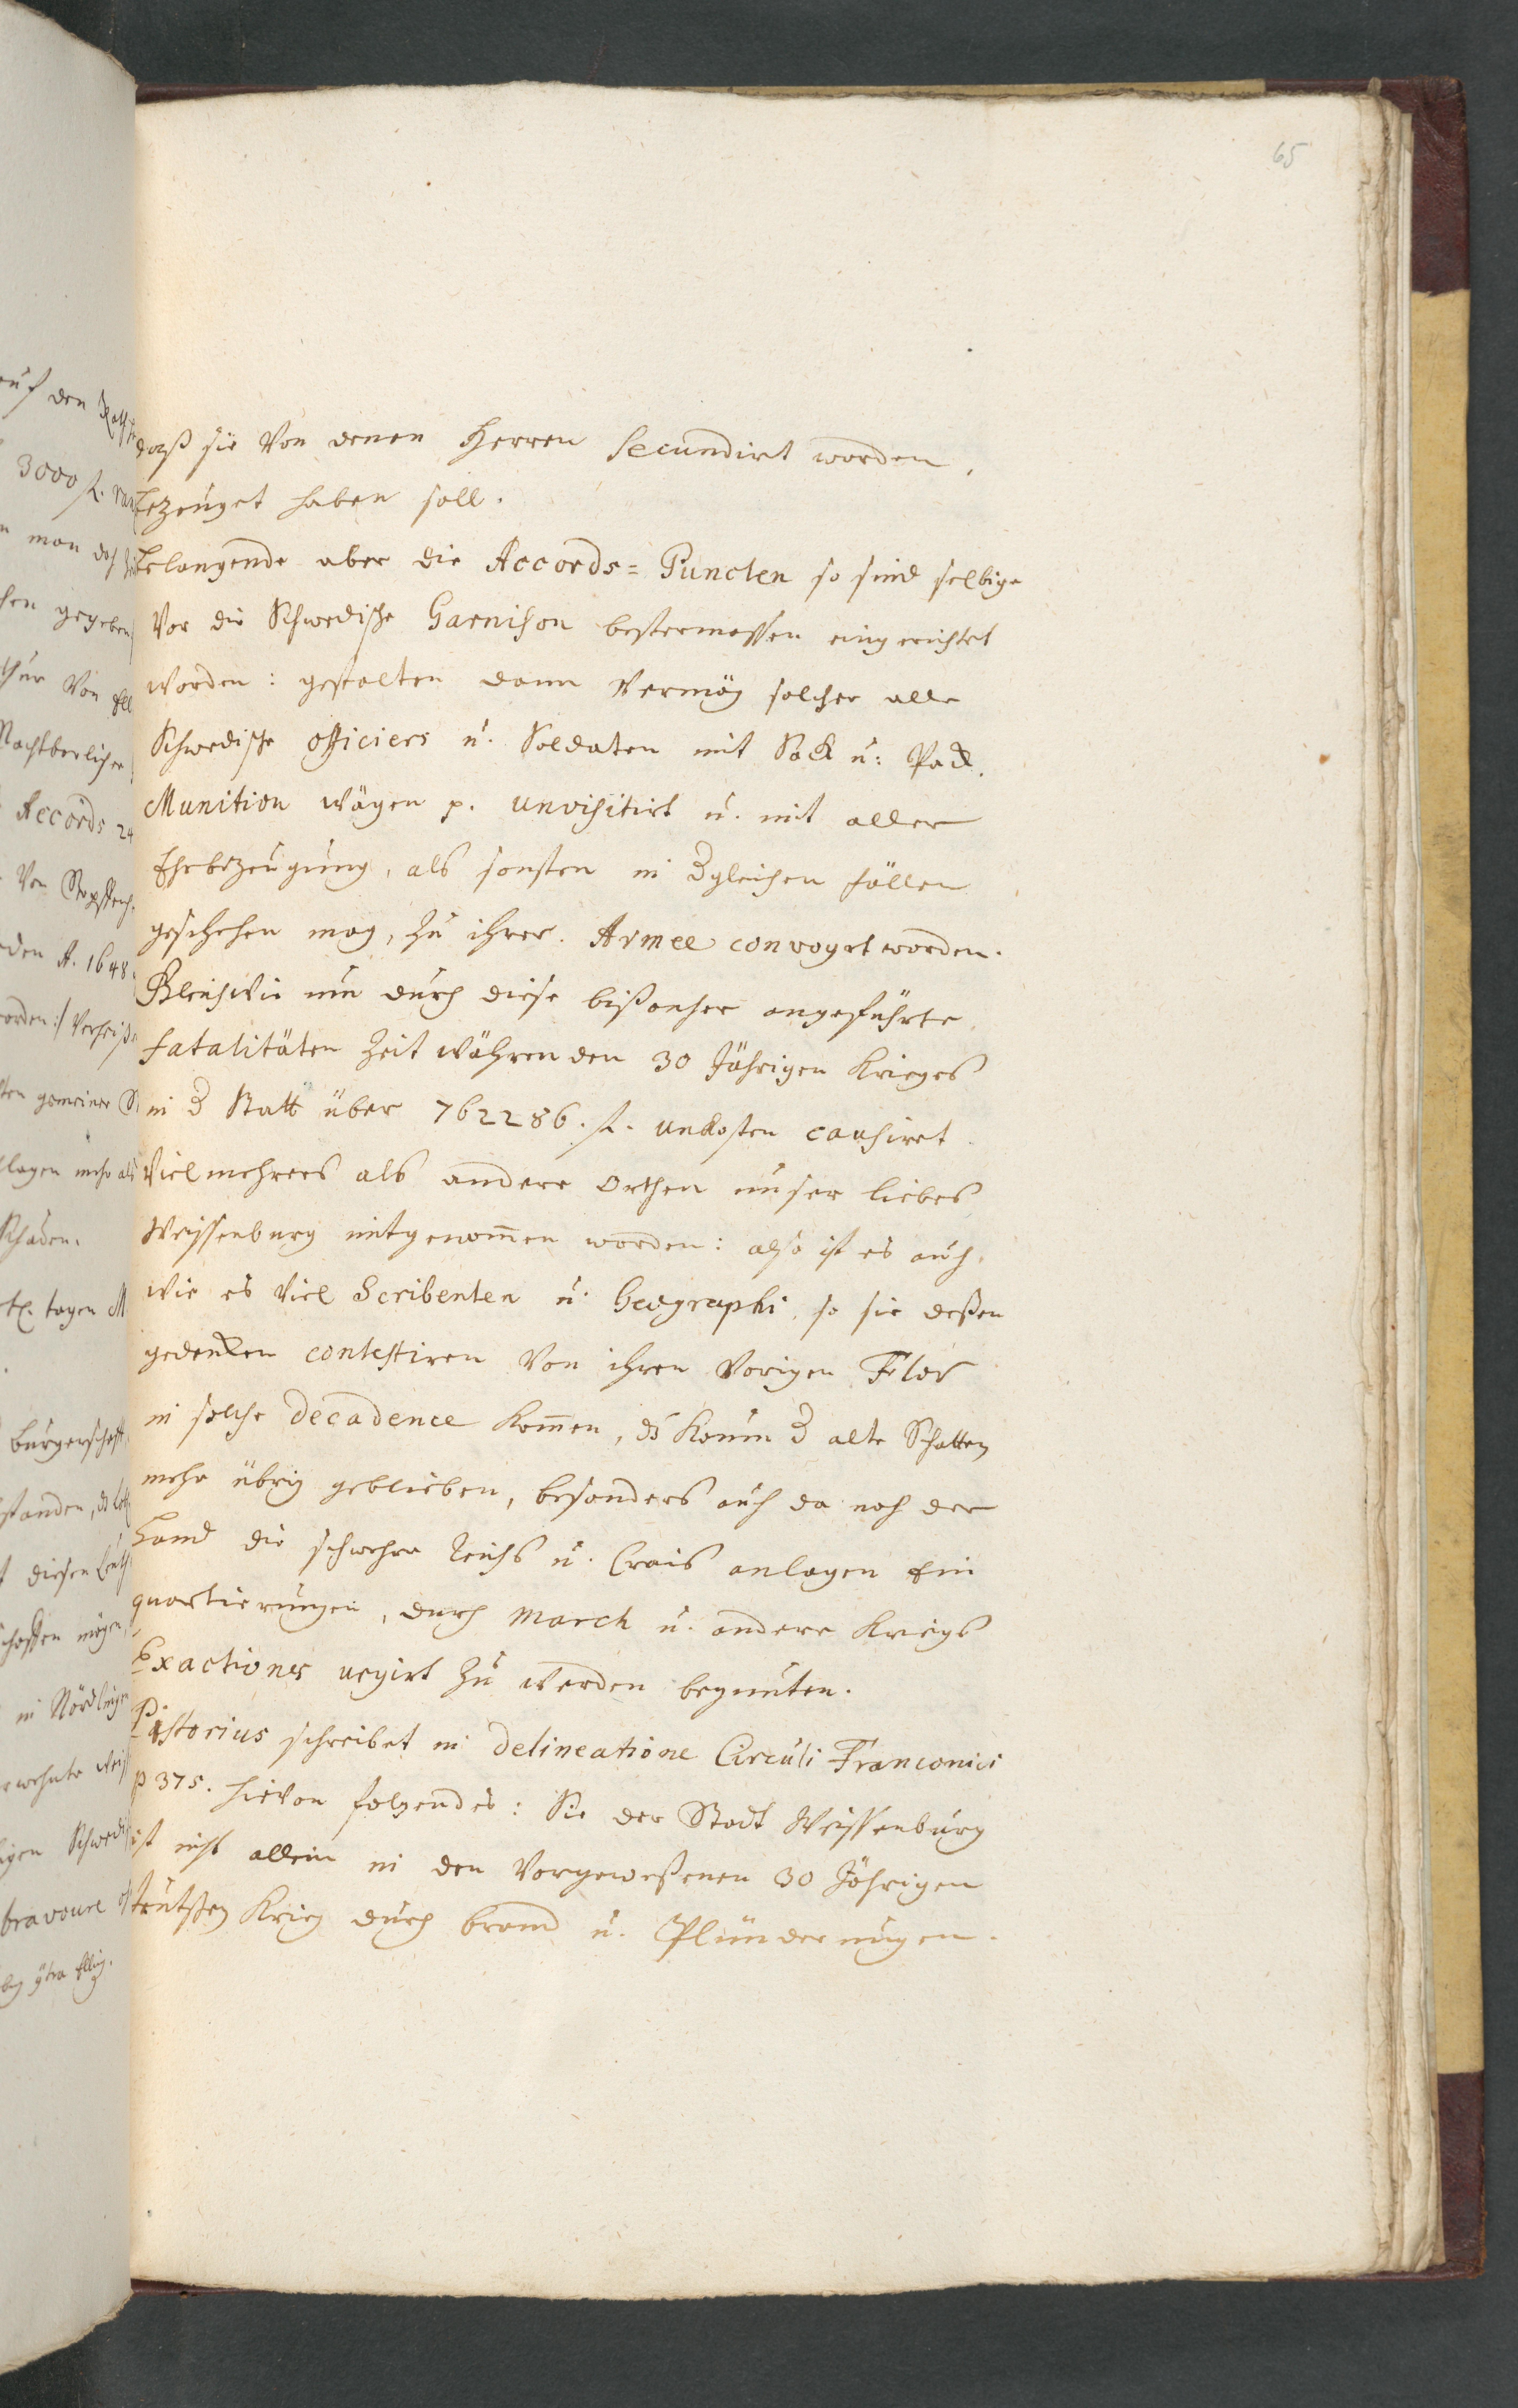 65
daß sie Von denen Herren Secundirt worden,
bezeuget haben soll.
belangende aber die Accords= Puncten so sind selbige
Vor die Schwedische Garnison bestermassen eingerichtet
Worden: gestalten dann Vermög solcher alle
Schwedische officiers u. Soldaten mit Sack u: Pack,
Munition wägen p. unvisitirt u. mit aller
Ehrbezeugung, als sonsten in dgleichen fällen
geschehen mag, zu ihrer Armee convoyrt worden.
Gleichwie nun durch diese bißanher angeführte
fatalitäten Zeit währenden 30 Jährigen Krieges
in d Statt über 762286. fl. unkosten causiret
Viel mehrers als andere Orthen unser liebes
Weissenburg mitgenom̄en worden: also ist es auch,
wie es Viel Scribenten u. Geographi, so sie deßen
gedencken contestiren Von ihren Vorigen Flor
in solche decadence kom̄en, ds kaum d alte Schatten
mehr übrig geblieben, besonders auch da nach der
Hand die schwehre Reichs u. Crais anlagen Ein
quartierungen, durch march u. andere Kriegs
Exactiones urgirt zu werden begunten.
Pistorius schreibet in delineatione Circuli Franconici
p 375. hievon folgendes: Sie der Stadt Weissenburg
ist nicht allein in den Vorgeweßenen 30 Jährigen
teutschen Krieg durch brand u. Plünderungen.